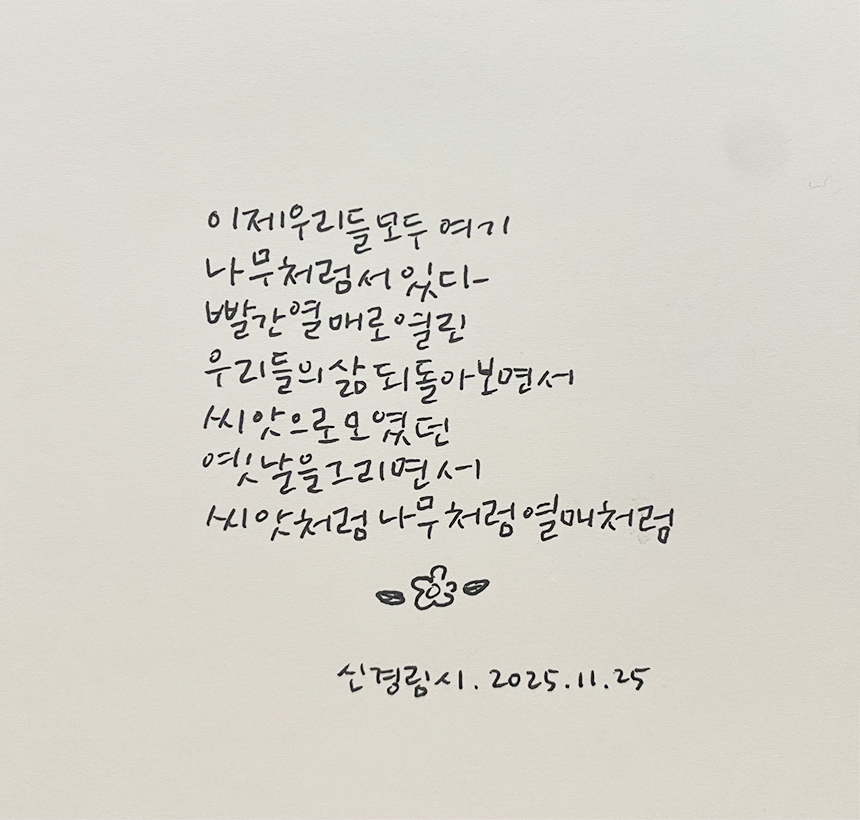 이제 우리들 모두 여기
나무처럼 서 있다
빨간 열매로 열린
우리들의 삶 되돌아보면서
씨앗으로 모였던
옛날을 그리면서
씨앗처럼 나무처럼 열매처럼
신경림 시. 2025.11.25